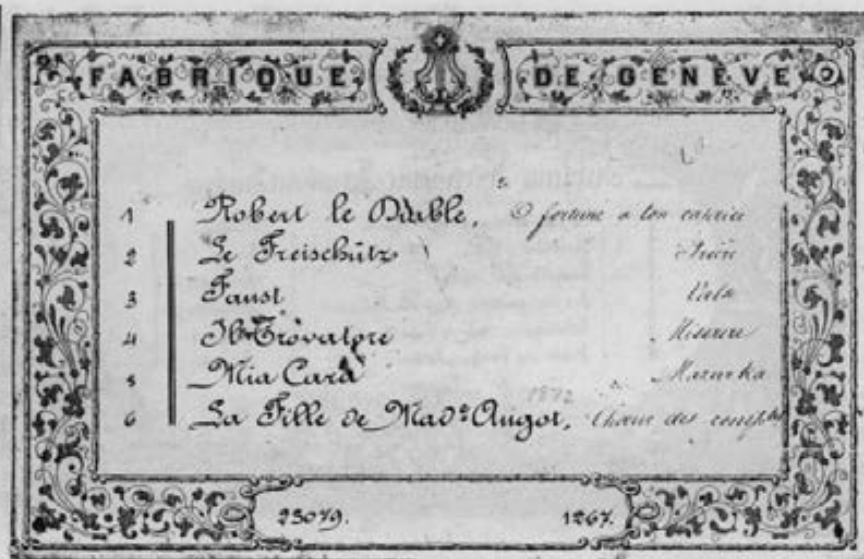 FABRIQUE DE GENÈVE
1 Robert le Diable, O fortune à ton caprice
2 Le Freischütz
3 Faust Vals
4 Il Trovatore Miserere
5 Mia Cara Mazurka
1872
6 La Fille de Mad<sup>e</sup> Angot, Chœur des
23079. 1267.